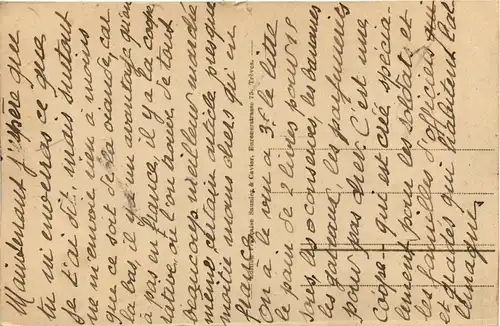 Maintenant j'espère que
tu m'enverras ce que
je t'ai dit, mais surtout
ne m'envoie rien à moins
que ce soit de la viande, car
la bas, il y a un avantage qu'on
a pas en france, il y a la coopé
rative, où l'on trouve de tout
beaucoup meilleur marché
même certain article presque
moitié moins chers qu'en
france.
On a le vin à 3. le litre
le pain de 2 livres pour 1f
les conserves, les bananes
les gateaux, les parfumeries
pour pas cher. C'est une
coopé qui est crée spécia-
lement pour les soldats et
les familles d'officiers
et gradés qui habitent l'al-
lemagne.
Edition Louise Benning & Cavier, Fleischstrasse 75, Trèves.